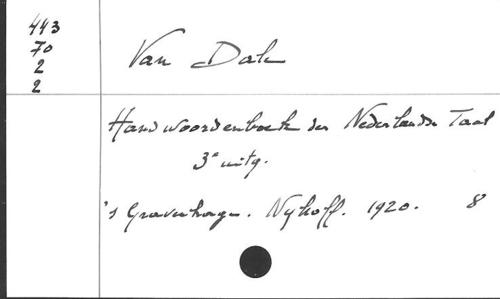 443
70
2
2
Van Dale
Handwoordenboek der Nederlandse Taal
3e uitg.
's Gravenhage. Nyhoff. 1920. 8